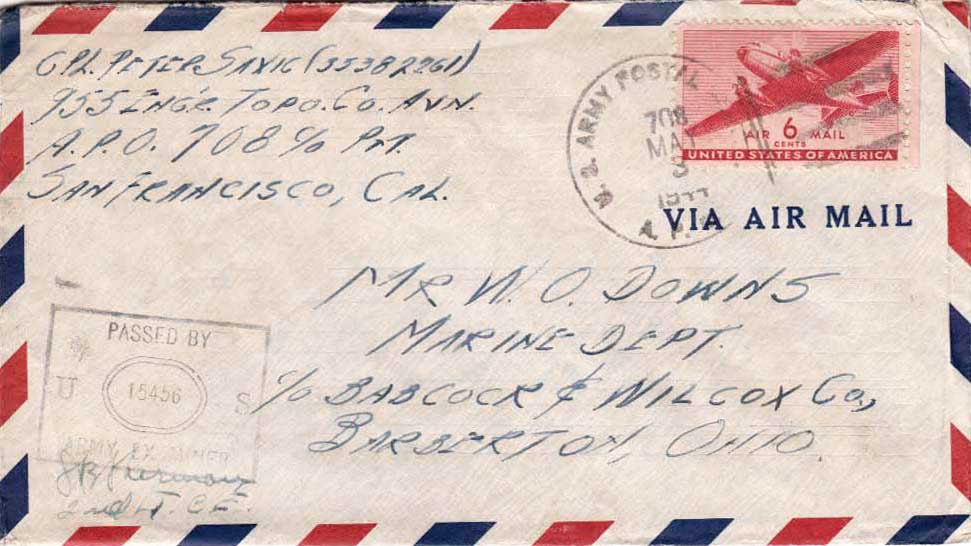 CPL. PETER SAVIC (35382261)
955 ENG'R. TOPO. CO. AVN.
A.P.O. 708 c/o P.M.
SAN FRANCISCO, CAL.
U. S. ARMY POSTAL
708
MAY
3
1944
A. P.
AIR 6 MAIL
CENTS
UNITED STATES OF AMERICA
VIA AIR MAIL
MR W. O. DOWNS
MARINE DEPT.
c/o BABCOCK & WILCOX CO.,
BARBERTON, OHIO.
PASSED BY
U 15456 S
ARMY EXAMINER
2nd LT. C.E.